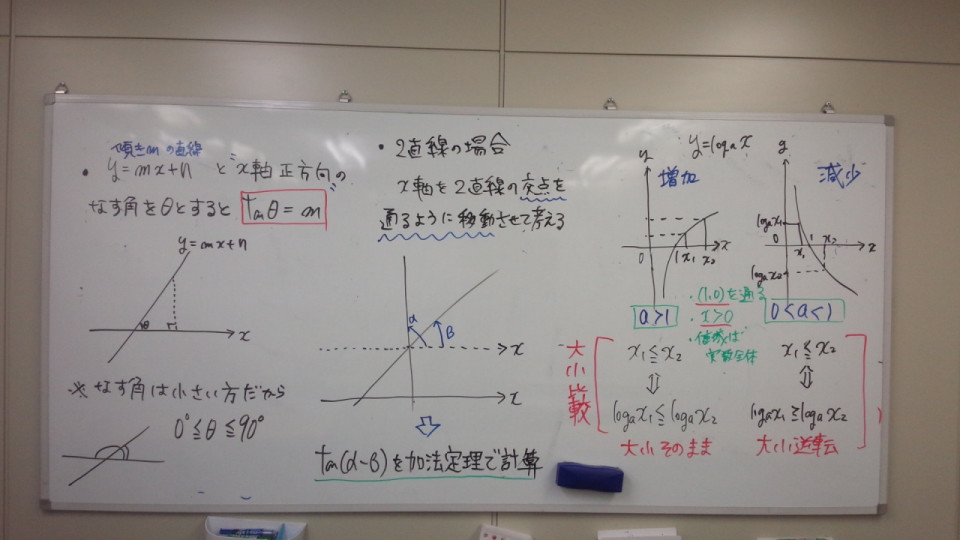 傾きmの直線
・y=mx+n と x軸正方向の
なす角をθとすると tanθ=m
y=mx+n
θ
x
※ なす角は小さい方だから
0°≦θ≦90°
・2直線の場合
x軸を2直線の交点を
通るように移動させて考える
α
β
x
x
tan(α-β)を加法定理で計算
y=logax
y
増加
0
1
x1
x2
x
a>1
y
減少
logax1
0
x1
1
x2
x
logax2
0<a<1
・(1,0)を通る
・x>0
・値域は
実数全体
大小比較
x1≦x2
⇕
logax1≦logax2
大小そのまま
x1≦x2
⇕
logax1≧logax2
大小逆転